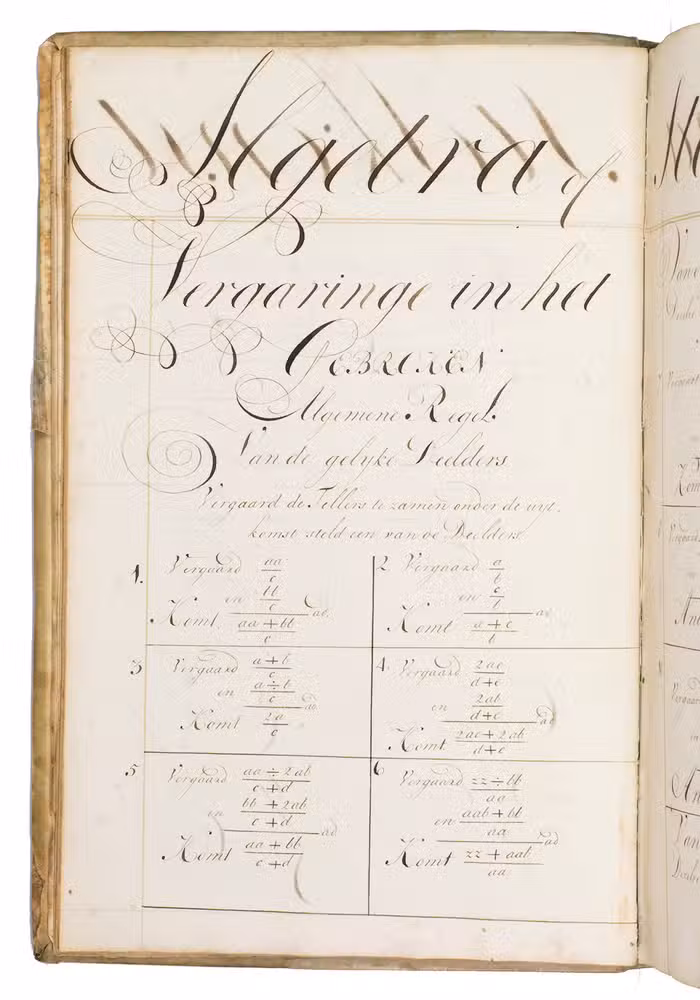 Algebra of
Vergaringe in het
GEBROKEN
Algemene Regel.
Van de gelyke Deelders
Vergaard de Tellers te zamen onder de uyt,
komst steld een van de Deelders
1. Vergaard aa/c
en bb/c ad
Komt aa + bb/c
2. Vergaard a/b
en c/b ad
Komt a + c/b
3 Vergaard a + b/c
en a ÷ b/c ad
Komt 2a/c
4. Vergaard 2ac/d+c
en 2ab/d+c ad
Komt 2ac + 2ab/d+c
5 Vergaard aa ÷ 2ab/c + d
en bb + 2ab/c + d ad
Komt aa + bb/c + d
6 Vergaard zz ÷ bb/aa
en aab + bb/aa ad
Komt zz + aab/aa